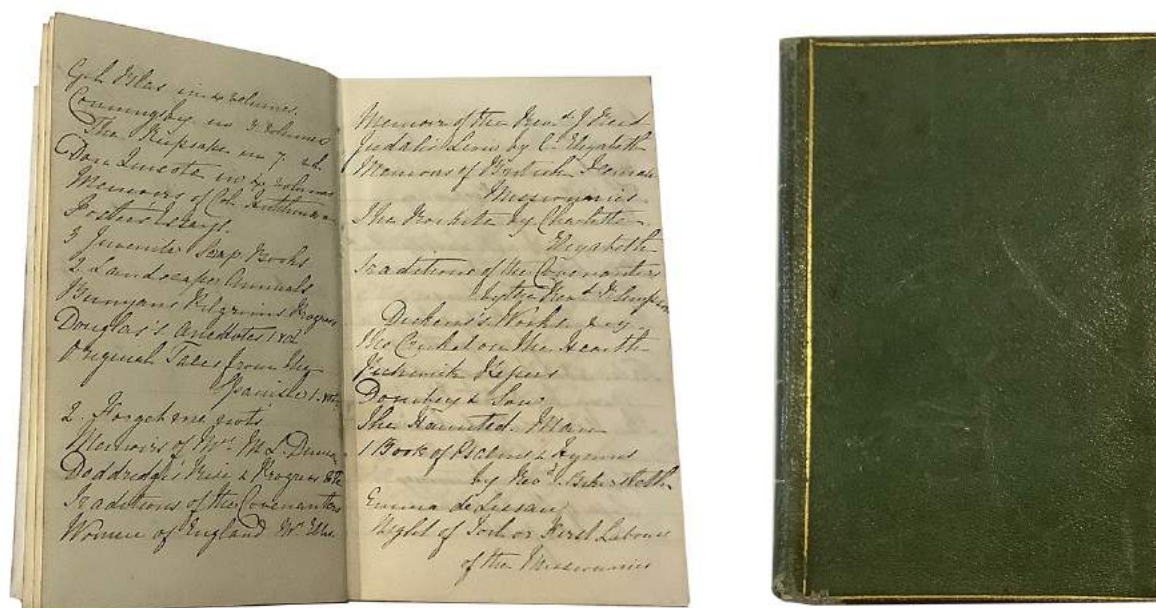 Gil Blas in 4 volumes.
Coningsby in 3 volumes
The Keepsake in 7. vol.
Don Quicote in 4 volumes
Memoirs of Col. Hutchinson
Foster's Essays.
3 Juvenile Scrap Books
2 Landscape Annuals
Bunyans Pilgrims Progress
Douglas's Anecdotes 1 vol
Original Tales from the
Spanish 1. vol.
2. Forget me nots
Memoirs of Mrs M. L. Duncan
Doddridge's Rise & Progress &c
Traditions of the Covenanters
Women of England Mrs Ellis
Memoir of the Revd J
Judah's Lion by C. Elizabeth
Memoirs of British Female
Missionaries.
The Rockite by Charlotte
Elizabeth
Traditions of the Covenanters
by the Revd Simpson
Dickens's Works
The Cricket on the Hearth
Pickwick Papers
Dombey & Son
The Haunted Man
1 Book of Psalms & Hymns
by Revd Bickersteth
Emma de Lissau
Night of Toil or First Labours
of the Missionaries